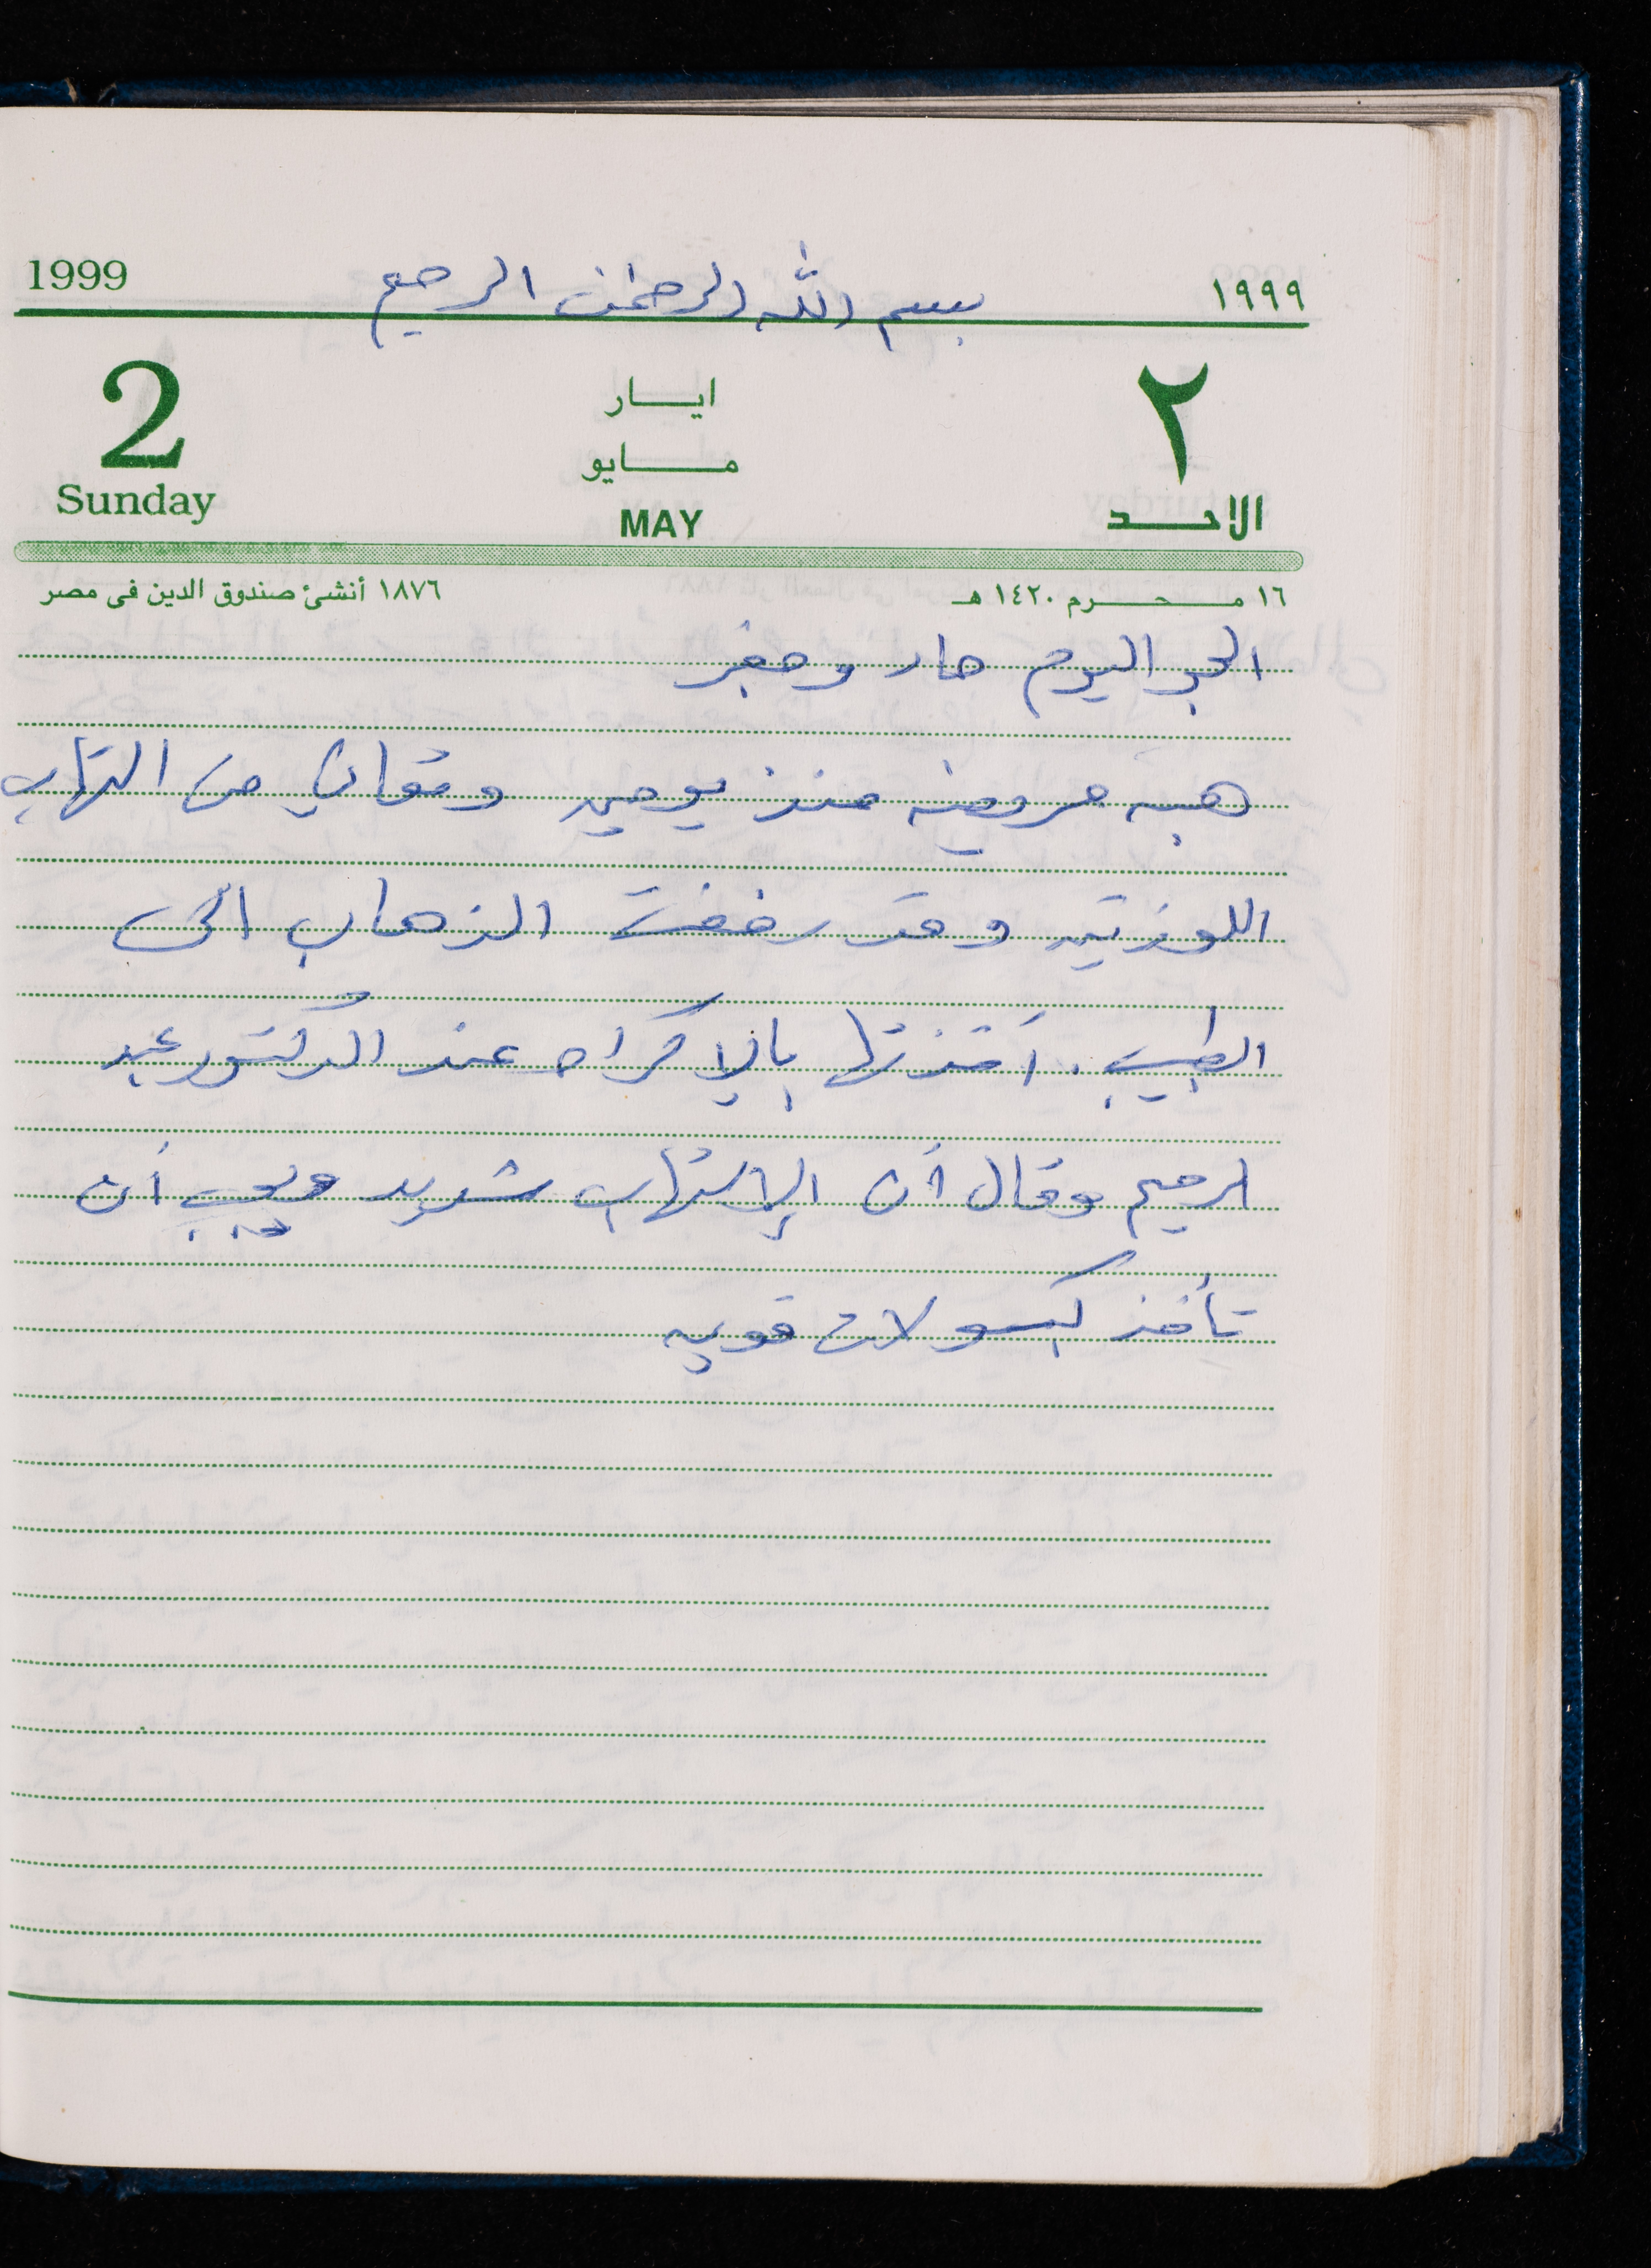 1999 بسم الله الرحمن الرحيم ١٩٩٩
2 ايـــار ٢
مـــايو
Sunday MAY الاحـــد
١٦ مـــحـــرم ١٤٢٠ هـ ١٨٧٦ أنشئ صندوق الدين فى مصر
الجو اليوم حار ومغبر
هبه مريضه منذ يومين وتعاني من التهاب
اللوزتين وقد رفضت الذهاب الى
الطبيب. أخذتها بالإكراه عند الدكتور عبد
الرحيم وقال أن الإلتهاب شديد ويجب أن
تأخذ كبسولات قويه